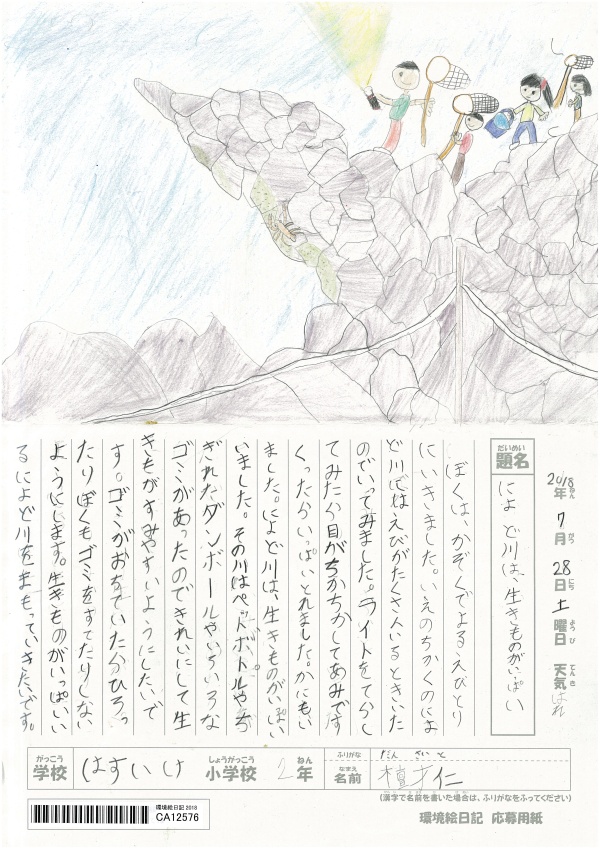 2018年ねん 7月がつ 28日にち 土曜日ようび 天気てんき はれ
だいめい
題名
によど川は、生きものがいっぱい
ぼくは、かぞくでよるえびとり
にいきました。いえのちかくのによ
ど川にはえびがたくさんいるときいた
のでいってみました。ライトをてらし
てみたら目がちかちかしてあみです
くったらいっぱいとれました。かにもい
ました。によど川は、生きものがいっぱい
いました。その川はペットボトルやち
ぎれたダンボールやいろいろな
ゴミがあったのできれいにして生
きもがすみやすいようにしたいで
す。ゴミがおちていたらひろっ
たりぼくもゴミをすてたりしな
ようにします。生きものがいっぱいい
るによど川をまもっていきたいです。
がっこう
学校
はすいけ
しょうがっこう
小学校
2年ねん
ふりがな
だん さいと
なまえ
名前
檀才仁
(漢字で名前を書いた場合は、ふりがなをふってください)
環境絵日記 2018
CA12576
環境絵日記 応募用紙